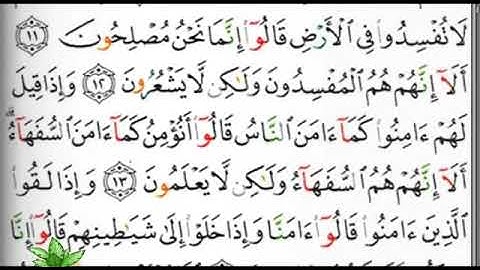 لَا تُفْسِدُوا۟ فِى ٱلْأَرْضِ قَالُوٓا۟ إِنَّمَا نَحْنُ مُصْلِحُونَ ١١
أَلَآ إِنَّهُمْ هُمُ ٱلْمُفْسِدُونَ وَلَـٰكِن لَّا يَشْعُرُونَ ١٢ وَإِذَا قِيلَ
لَهُمْ ءَامِنُوا۟ كَمَآ ءَامَنَ ٱلنَّاسُ قَالُوٓا۟ أَنُؤْمِنُ كَمَآ ءَامَنَ ٱلسُّفَهَآءُ ۗ
أَلَآ إِنَّهُمْ هُمُ ٱلسُّفَهَآءُ وَلَـٰكِن لَّا يَعْلَمُونَ ١٣ وَإِذَا لَقُوا۟
ٱلَّذِينَ ءَامَنُوا۟ قَالُوٓا۟ ءَامَنَّا وَإِذَا خَلَوْا۟ إِلَىٰ شَيَـٰطِينِهِمْ قَالُوٓا۟ إِنَّا